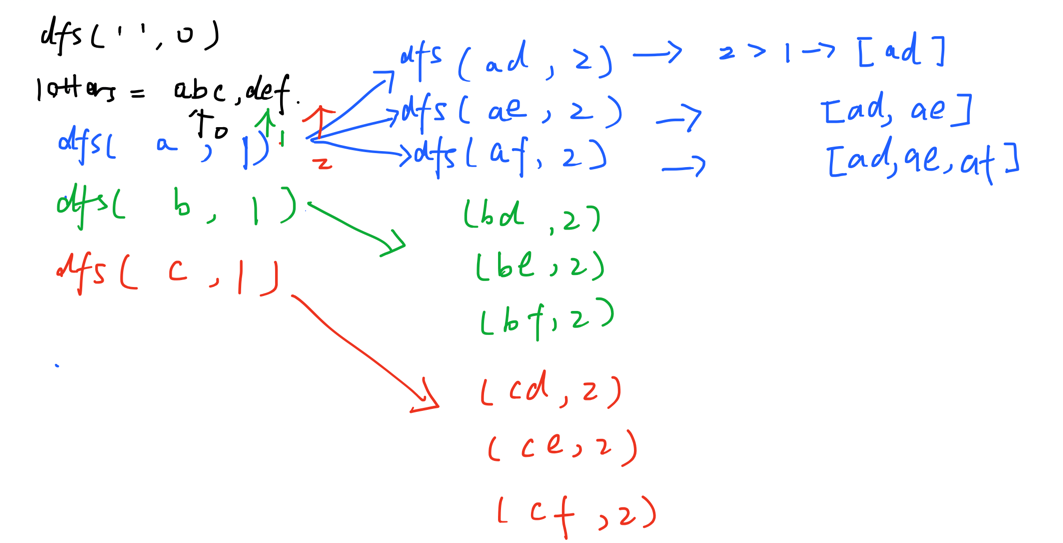 dfs('', 0)
letters = abc, def.
0
1
2
dfs( a , 1)
dfs( ad , 2) → 2 > 1 → [ad]
dfs( ae , 2) → [ad, ae]
dfs( af, 2) → [ad, ae, af]
dfs( b , 1)
(bd , 2)
(be , 2)
(bf, 2)
dfs( c , 1)
(cd, 2)
(ce, 2)
(cf , 2)